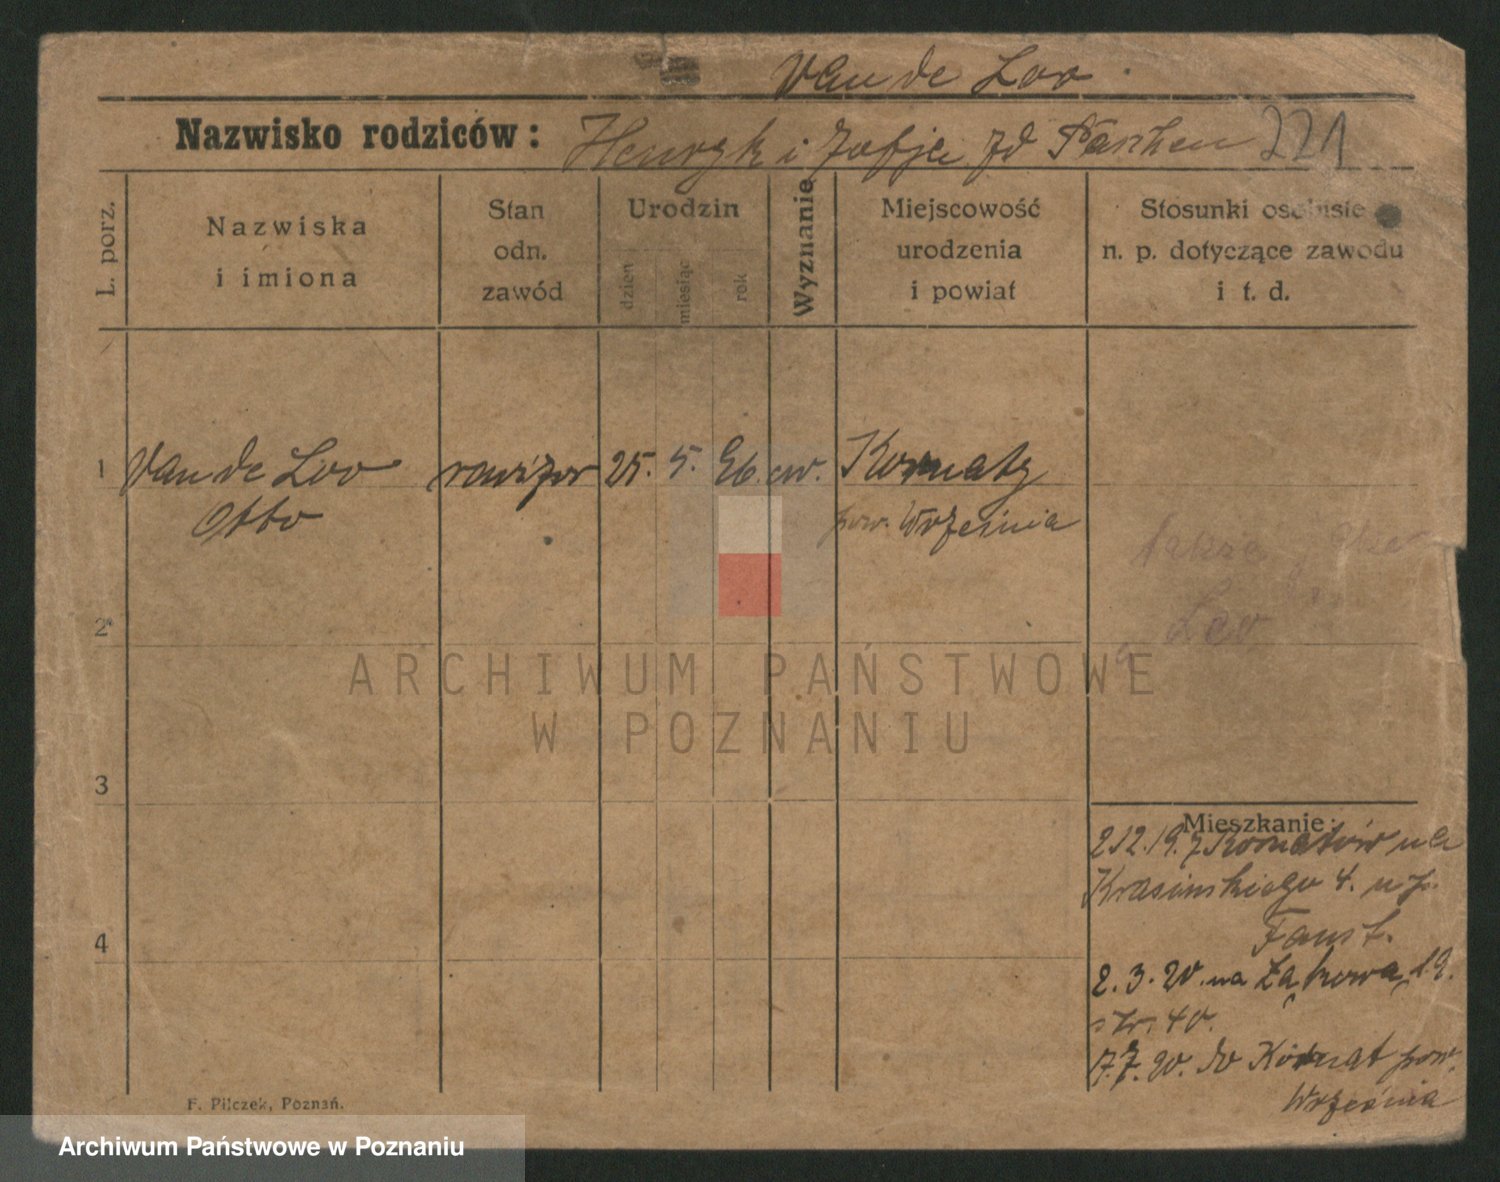 Van de Loo.
Nazwisko rodziców: Henryk i Zofja zd Paschen 221
L. porz.
Nazwiska
i imiona
Stan
odn.
zawód
Urodzin
dzień
miesiąc
rok
Wyznanie
Miejscowość
urodzenia
i powiat
Stosunki osobiste
n. p. dotyczące zawodu
i t. d.
1 Van de Loo 25. 5. 96. ew. Kornaty
Otto pow. Września
Loo
2
3
4
Mieszkanie:
2.12.19. z Kornatów na
Krasińskiego 4. u p.
Faust.
2.3.20. na Łąkową 19.
str. 40.
7.7.20. do Kornat pow.
Września
F. Pilczek, Poznań.
ARCHIWUM PAŃSTWOWE
W POZNANIU
Archiwum Państwowe w Poznaniu